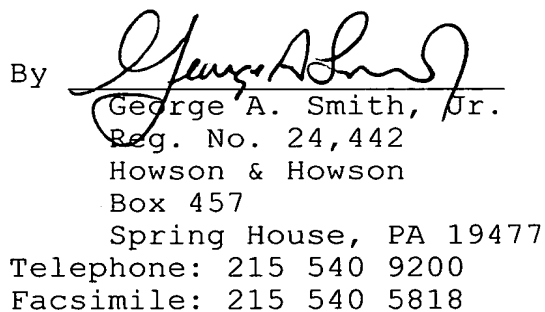 By George A. Smith, Jr.
George A. Smith, Jr.
Reg. No. 24,442
Howson & Howson
Box 457
Spring House, PA 19477
Telephone: 215 540 9200
Facsimile: 215 540 5818